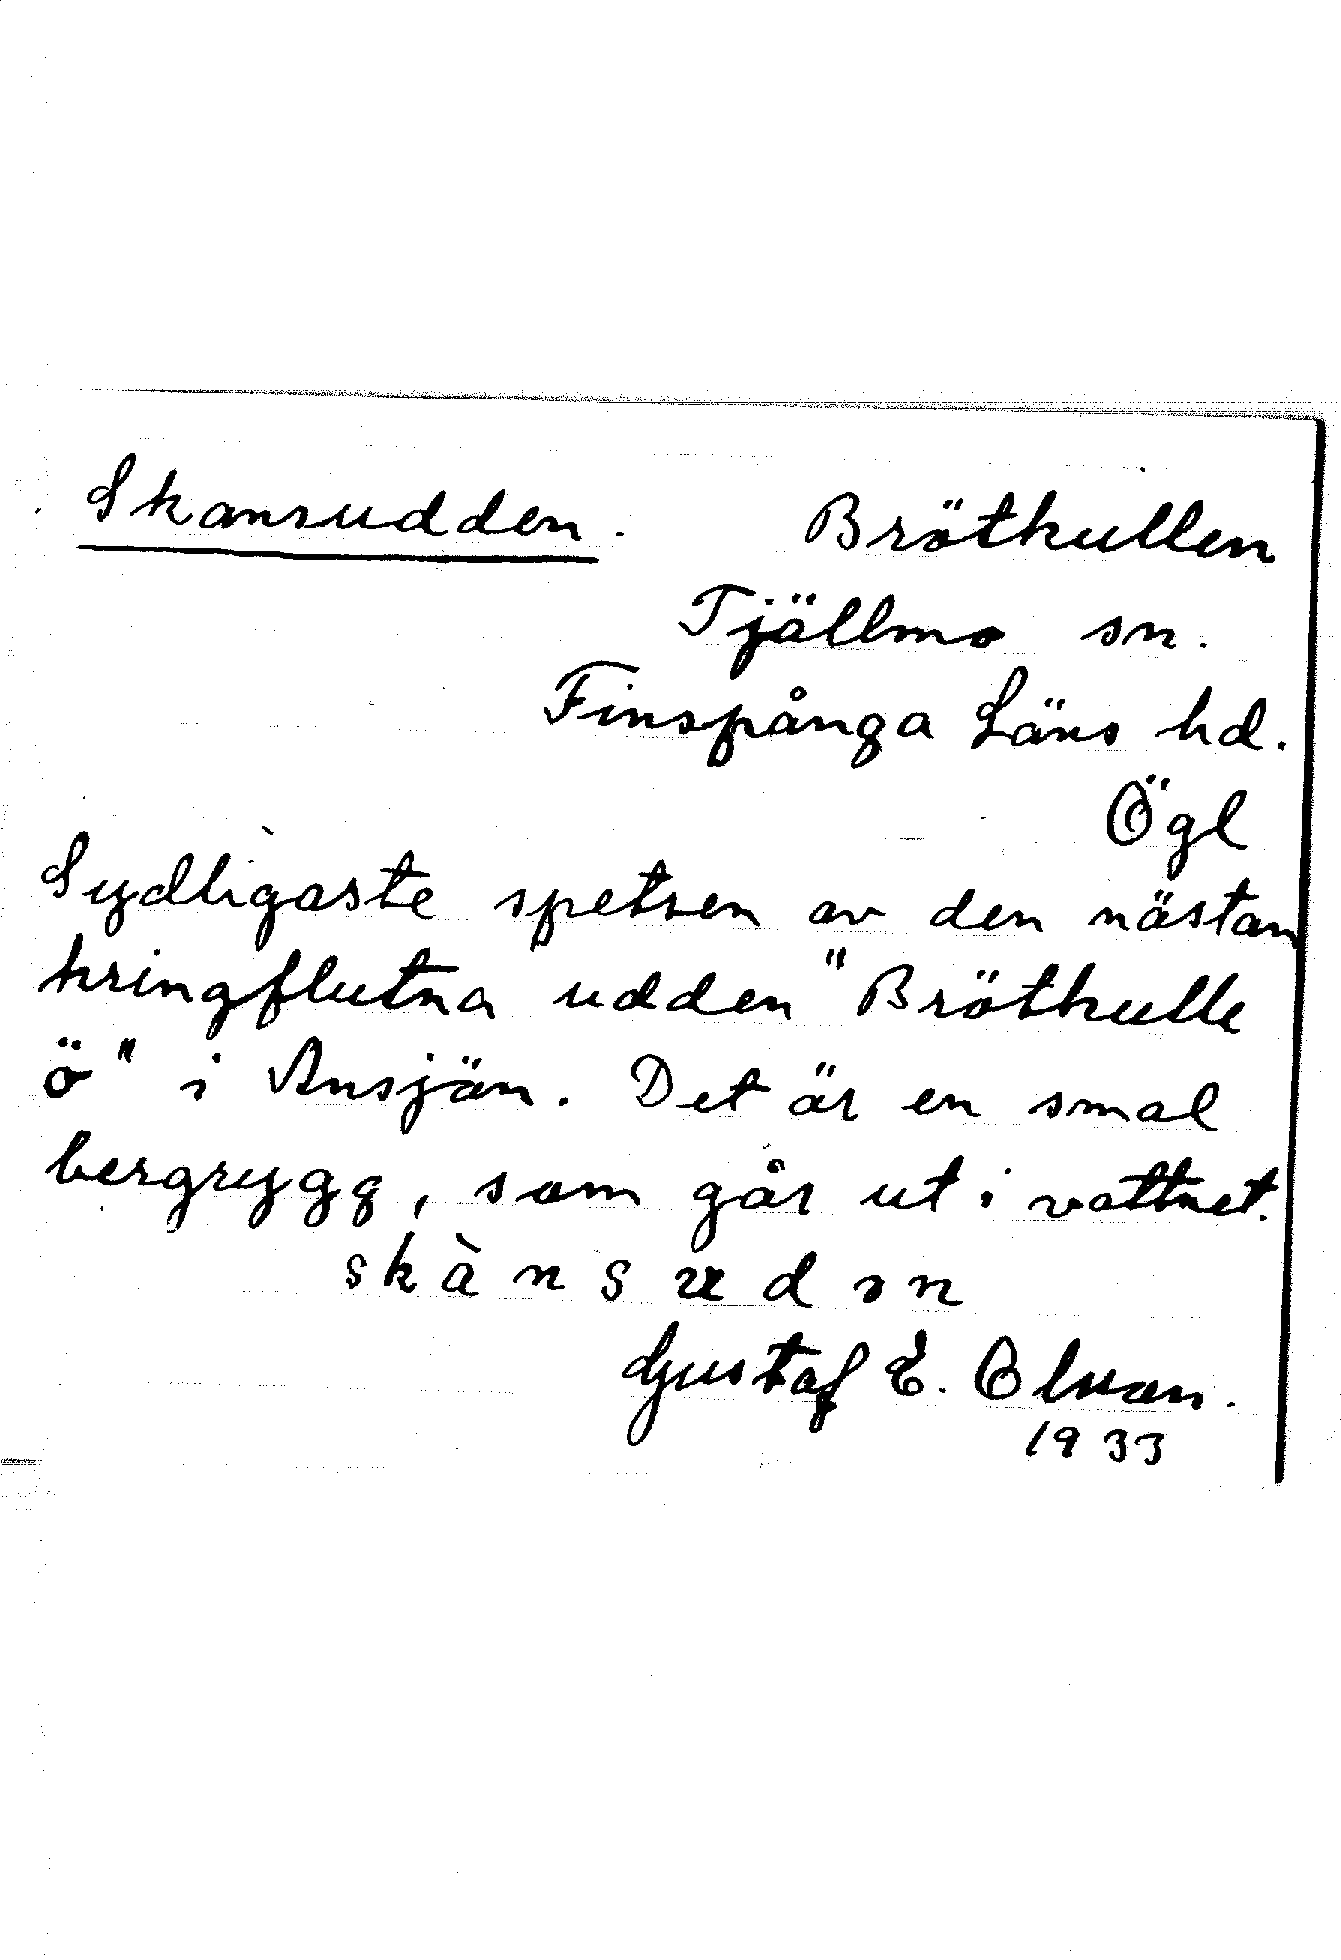 Skansudden. Bröthullen
Tjällmo sn.
Finspånga Läns hd.
Ögl
Sydligaste spetsen av den nästan
kringflutna udden "Bröthulle
ö" i Ansjön. Det är en smal
bergrygg, som går ut i vattnet.
skànsudən
Gustaf E. Olsson.
1933